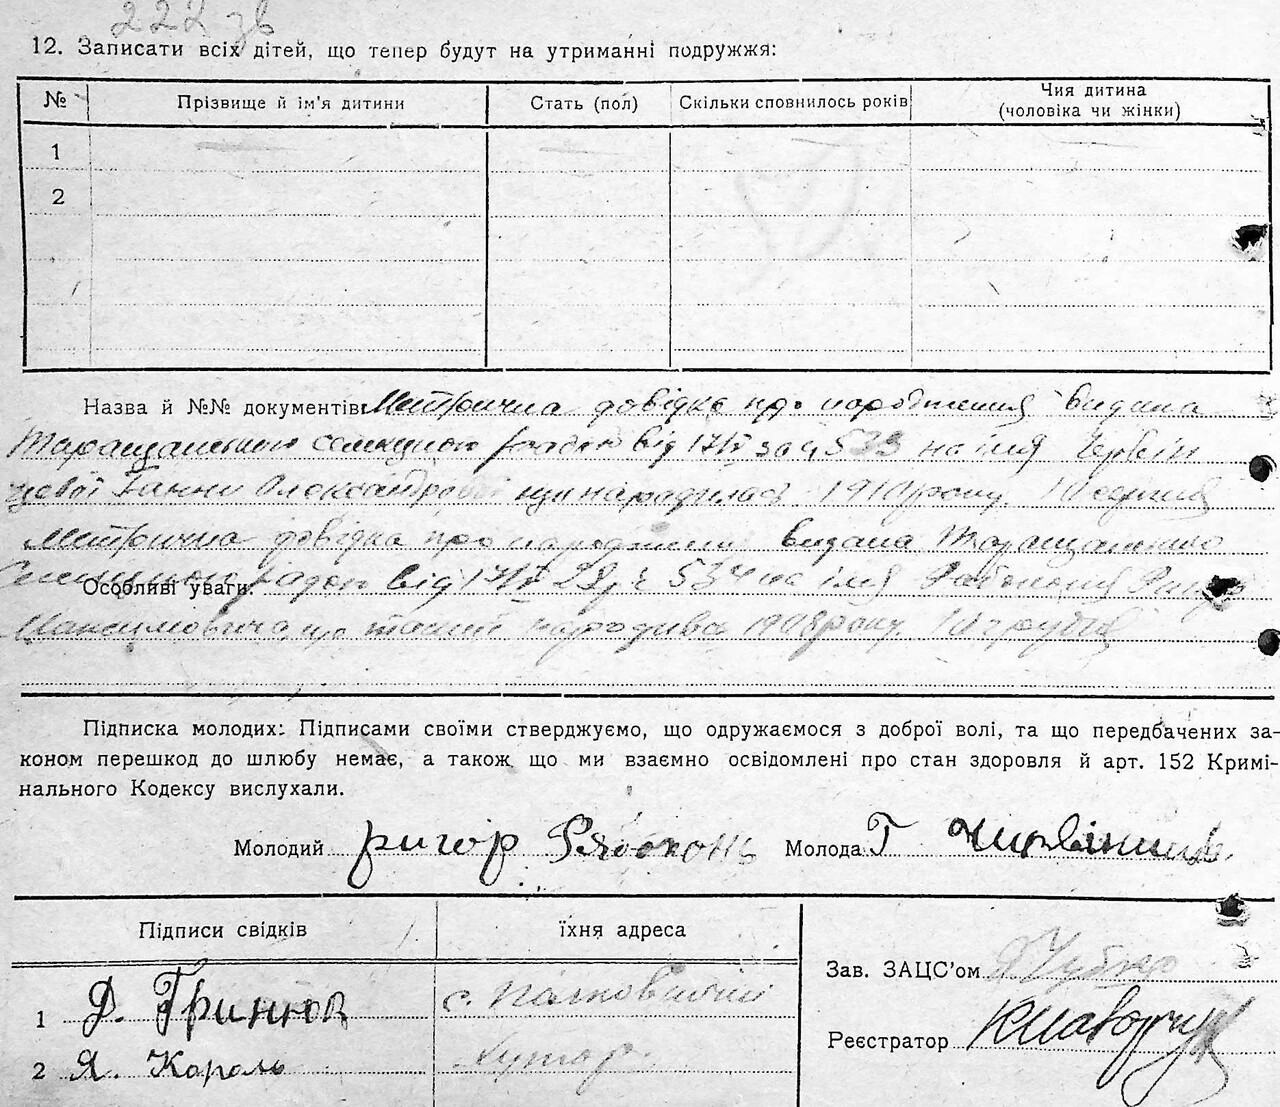 222 зв
12. Записати всіх дітей, що тепер будут на утриманні подружжя:
№ Прізвище й ім'я дитини Стать (пол) Скільки сповнилось років Чия дитина (чоловіка чи жінки)
1
2
Назва й №№ документів: Метрична довідка про народження видана
Таращанською селищною радою від 17/V за ч 533 на ім'я Червін
цевої Ганни Олександрової що народилась 1910 року 10 серпня
Метрична довідка про народження видана Таращанською
Селищною радою від 17/V 28 р ч 534 на ім'я
Особливі уваги:
Максимовича, що такий народився 1908 року. 10 грудня
Підписка молодих: Підписами своїми стверджуємо, що одружаємося з доброї волі, та що передбачених за-
коном перешкод до шлюбу немає, а також що ми взаємно освідомлені про стан здоровля й арт. 152 Кримі-
нального Кодексу вислухали.
Молодий ригор Рябоконь Молода Г
Підписи свідків їхня адреса
Зав. ЗАЦС'ом
1 Д. с.
Реєстратор
2 Я. Король хутор.